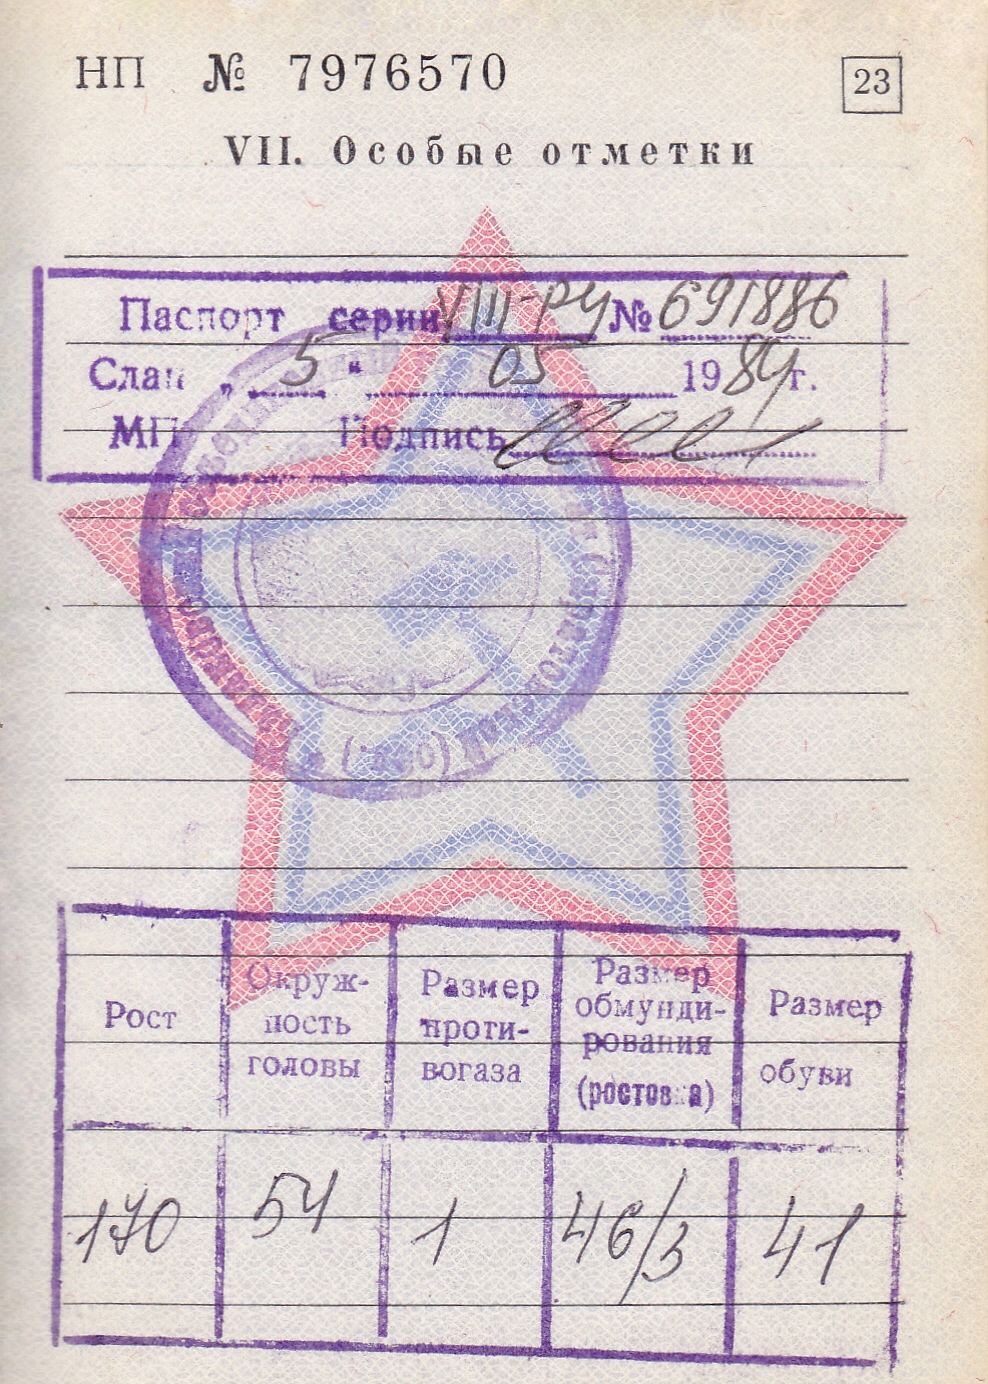 НП № 7976570
23
VII. Особые отметки
Паспорт серии VIII-РУ № 691886
Сдан „ 5 “ 05 1984 г.
МП Подпись
Рост
Окруж-
ность
головы
Размер
проти-
вогаза
Размер
обмунди-
рования
(ростовка)
Размер
обуви
170 54 1 46/3 41